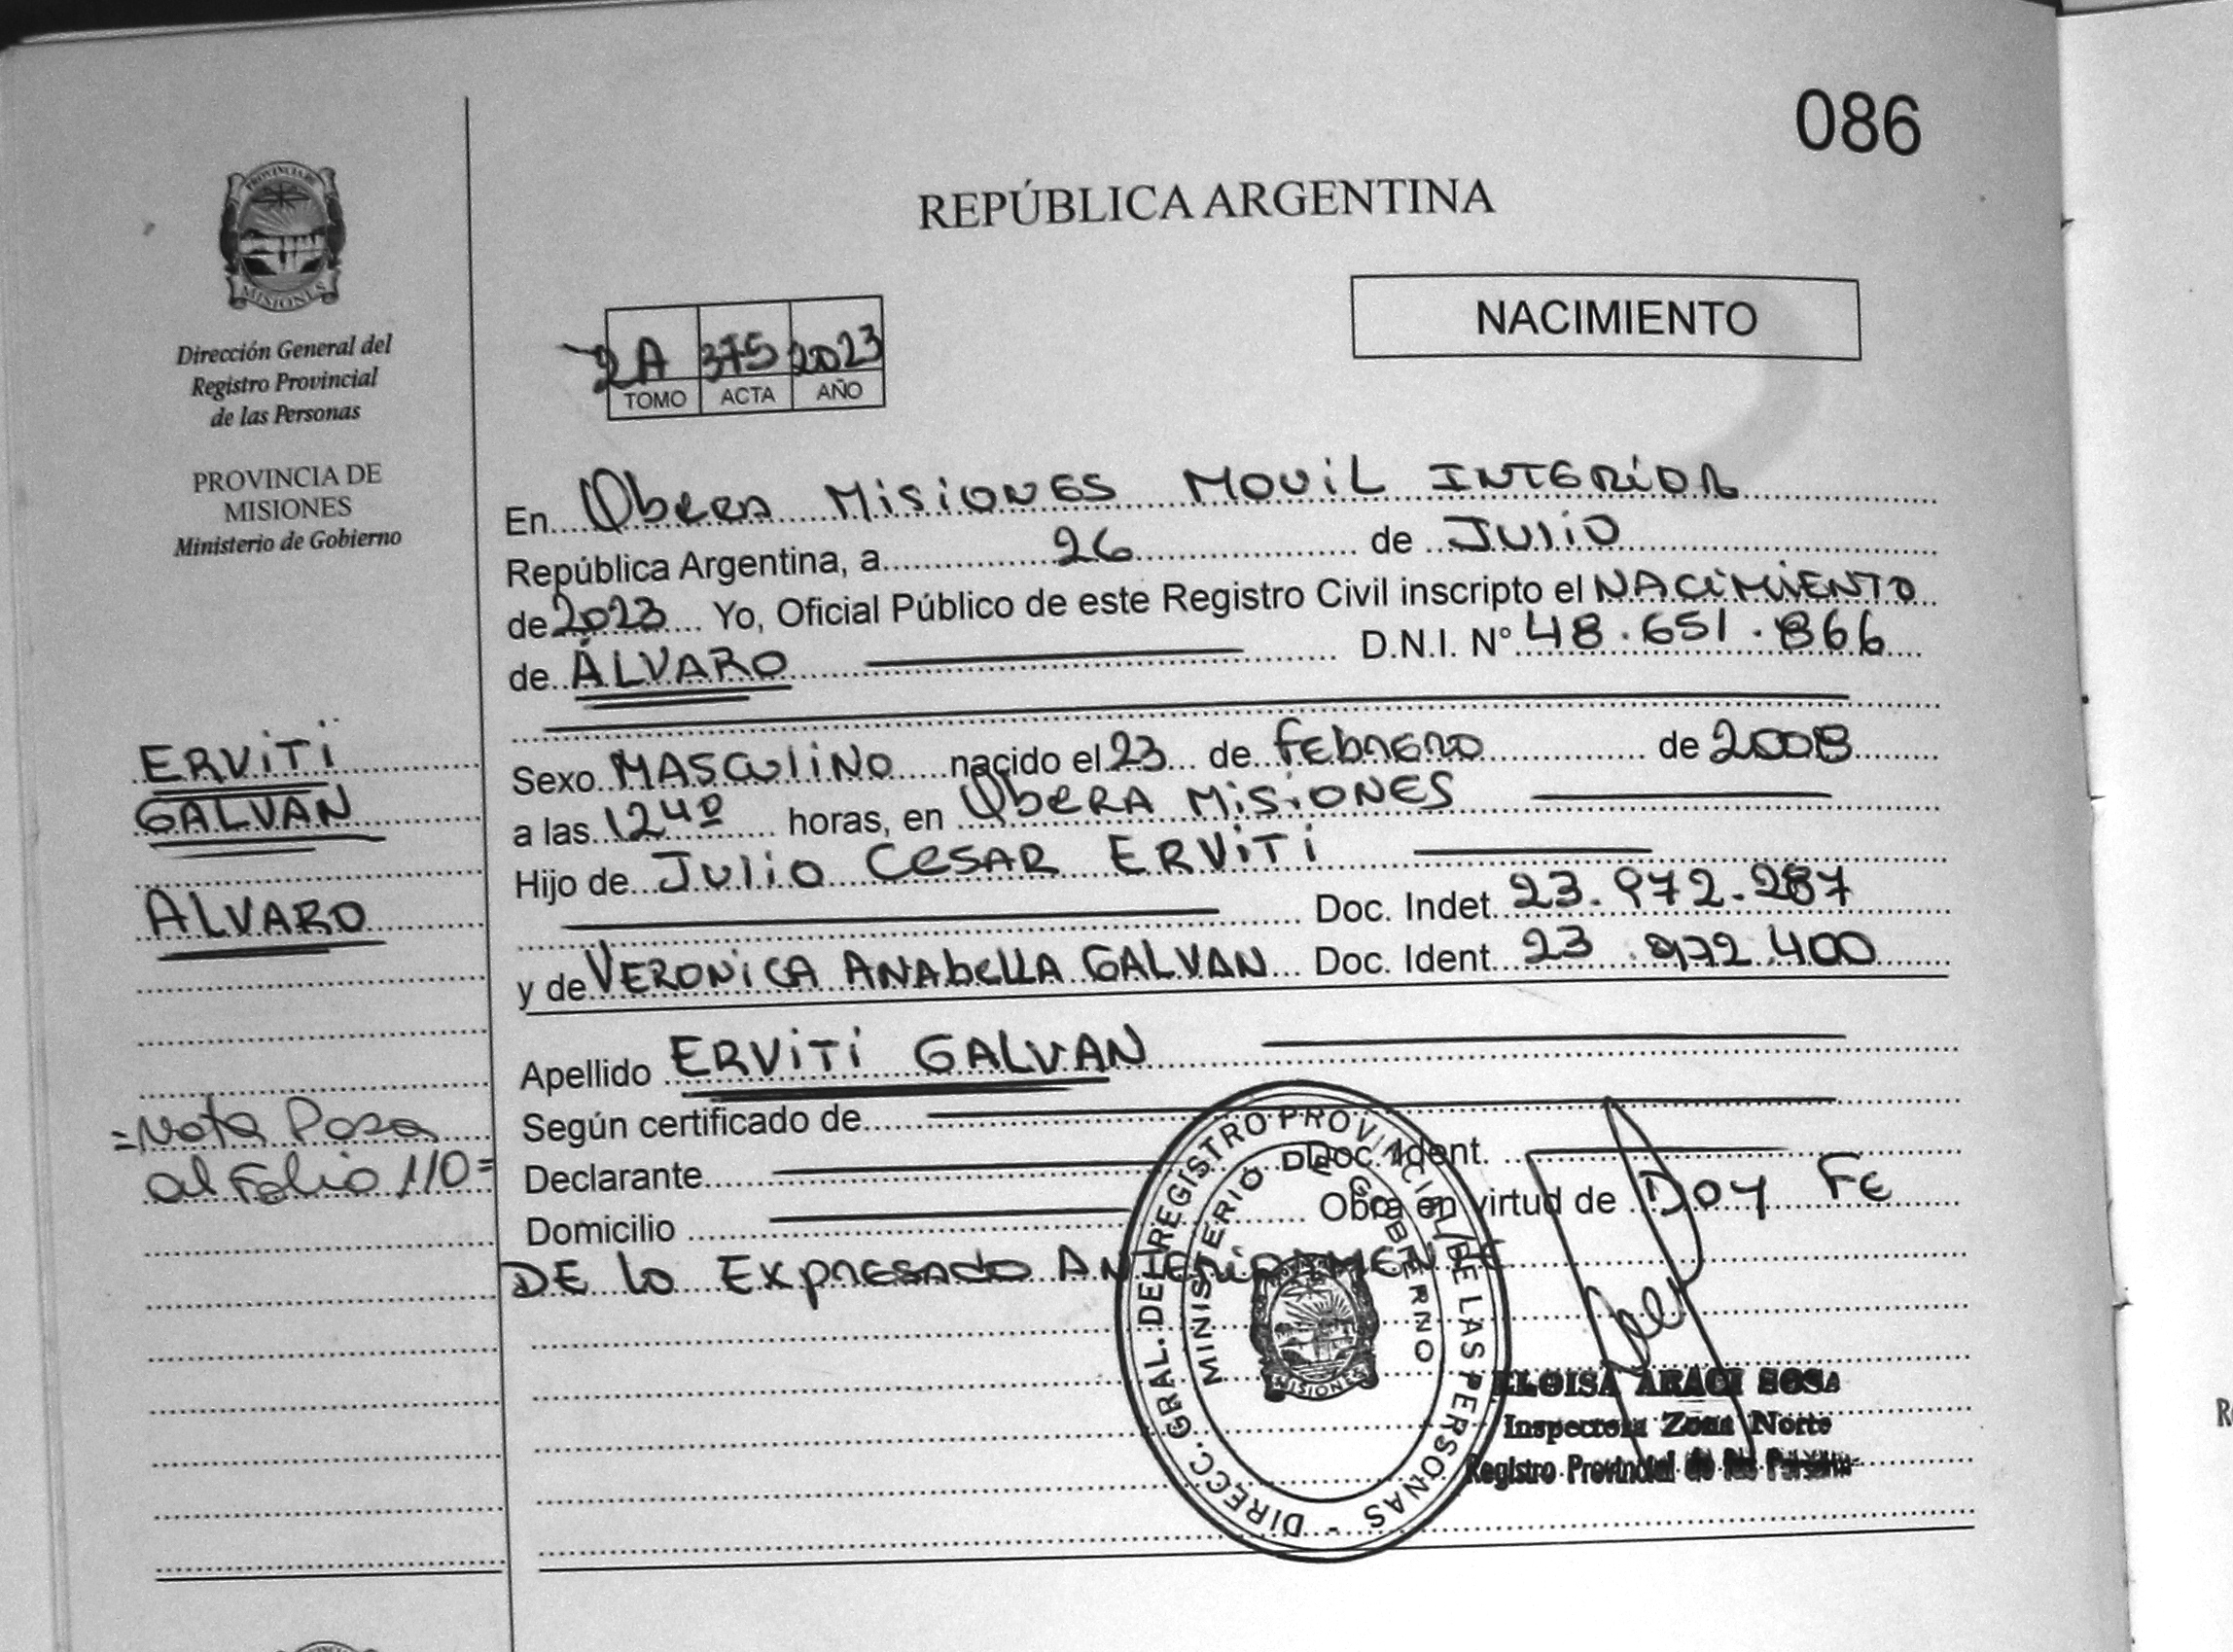 086
REPÚBLICA ARGENTINA
NACIMIENTO
PROVINCIA DE
MISIONES
Dirección General del
Registro Provincial
de las Personas
PROVINCIA DE
MISIONES
Ministerio de Gobierno
2A 375 2023
TOMO ACTA AÑO
En Obera Misiones Movil Interior
República Argentina, a 26 de Julio
de 2023 Yo, Oficial Público de este Registro Civil inscripto el NACIMIENTO
de ÁLVARO D.N.I. N° 48.651.866
Sexo MASCULINO nacido el 23 de Febrero de 2008
a las 12 40 horas, en Obera Misiones
Hijo de Julio Cesar Erviti
Doc. Indet. 23.972.287
y de Veronica Anabella Galvan Doc. Ident. 23.972.400
Apellido Erviti Galvan
Según certificado de
Declarante Doc. Ident.
Domicilio Obra en virtud de Doy Fe
De lo Expresado Anteriormente
ERVITI
GALVAN
ALVARO
=Nota Pasa
al Folio 110=
DIRECC. GRAL. DEL REGISTRO PROVINCIAL DE LAS PERSONAS -
MINISTERIO DE GOBIERNO
MISIONES
ELOISA ARACI SOSA
Inspectora Zona Norte
Registro Provincial de las Personas